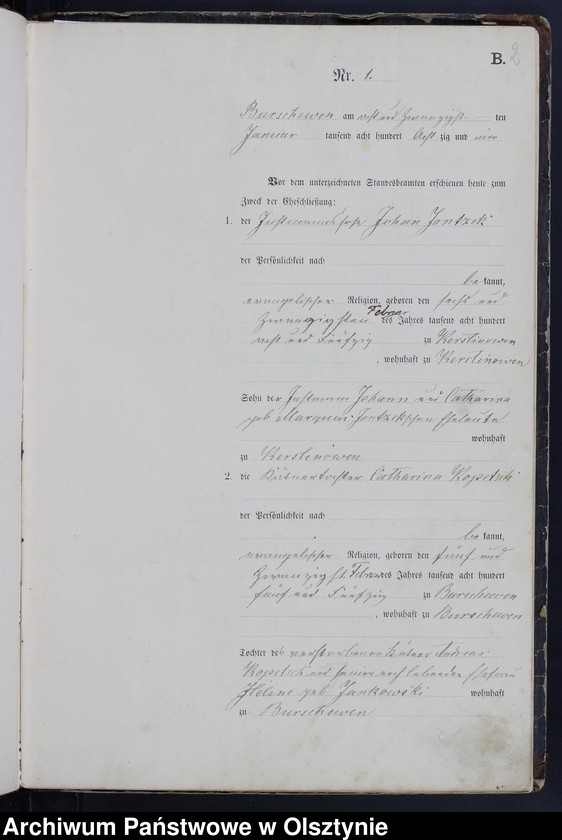 B. 2
Nr. 1.
Burschewen am acht und zwanzigst ten
Januar tausend acht hundert Acht zig und vier
Vor dem unterzeichneten Standesbeamten erschienen heute zum
Zweck der Eheschließung:
1. der Instmannssohn Johan Jontzek
der Persönlichkeit nach
be kannt,
evangelischer Religion, geboren den sechs und
zwanzigsten Februar des Jahres tausend acht hundert
acht und Fünfzig zu Kerstinowen
, wohnhaft zu Kerstinowen
Sohn der Instmann Johann und Catharina
geb Jontzekschen Eheleute
wohnhaft
zu Kerstinowen
2. die Kätnertochter Catharina Kopetsch
der Persönlichkeit nach
be kannt,
evangelischer Religion, geboren den fünf und
zwanzigst. Februar des Jahres tausend acht hundert
fünf und Fünfzig zu Burschewen
, wohnhaft zu Burschewen
Tochter des verstorbenen Kätner Andreas
Kopetsch und seiner noch lebenden Ehefrau
Helene geb Jankowski wohnhaft
zu Burschewen
Archiwum Państwowe w Olsztynie